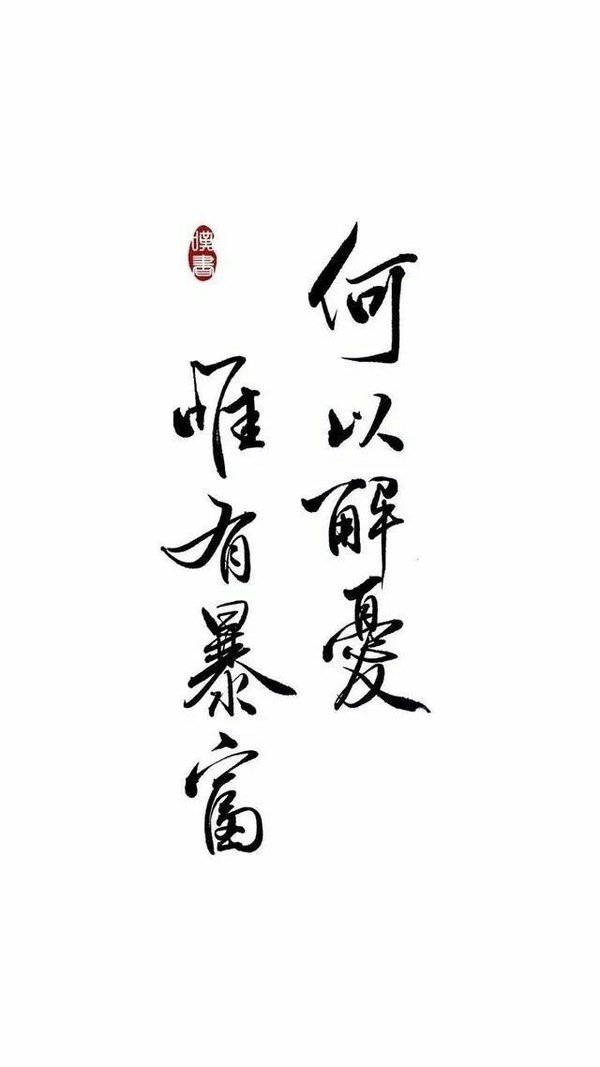 何以解憂
唯有暴富
漢書